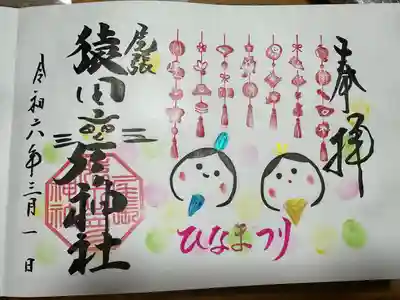 奉拝
ひなまつり
尾張
猿田彦神社
令和六年三月一日